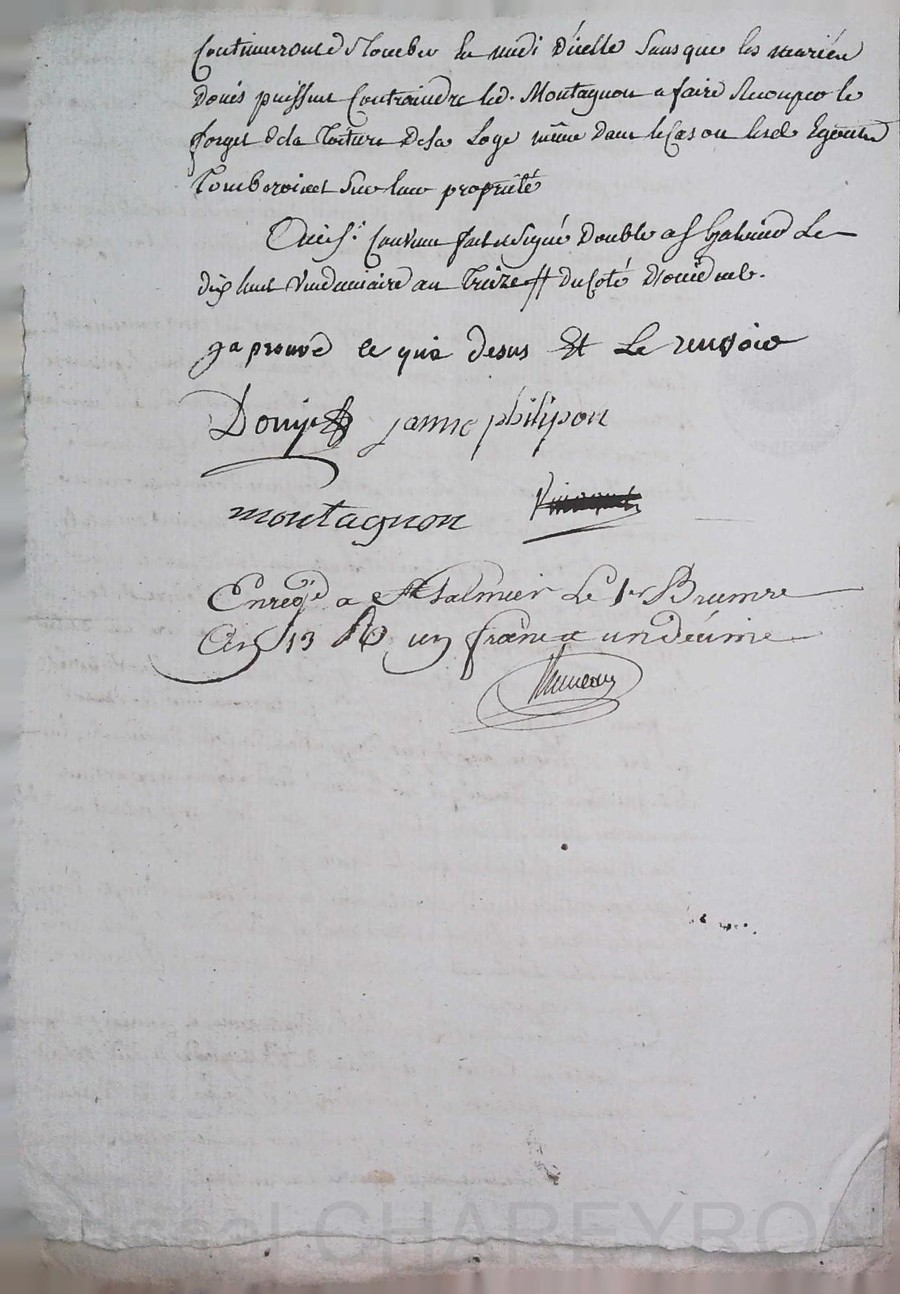 Continueront de tomber le midi d'icelle sans que les mariés
Doûis puissent contraindre led. Montagnon a faire recouper le
forget de la toiture de sa Loge même dans le cas ou lesd. Egouts
Tomberoient sur leur propriété
Ainsi convenu fait et signé Double a St Galmier Le
dix huit Vendemiaire an treize // du coté
ga prouve ce qui desus Et Le renvoie
janne philipon
montagnon
Enregd a St Galmier Le 1er Brumre
An 13 R un franc un décime
CHAREYRON